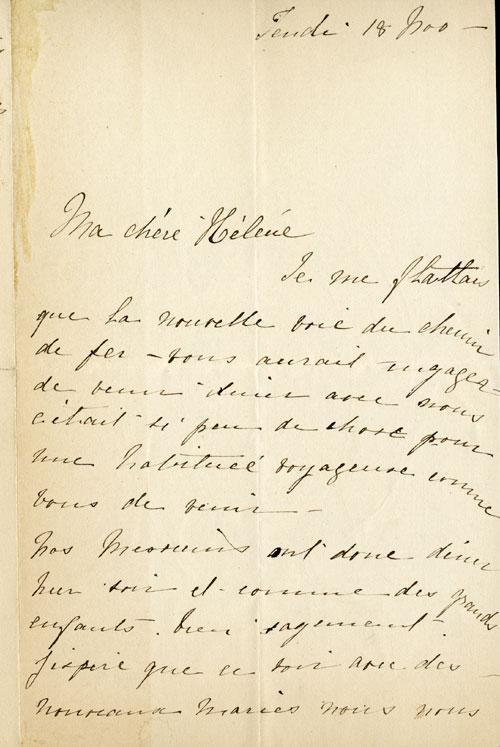 Jeudi 18 Nov —
Ma chère Hélène
Je me flattais
que la nouvelle voie du chemin
de fer — vous aurait engagée —
de venir diner avec nous
c'était si peu de chose pour
une habituée voyageuse comme
vous de venir —
Nos Messieurs ont donc diner
hier soir et comme des grands
enfants. bien sagement.
J'espère que ce soir avec des
nouveaux mariés nous nous